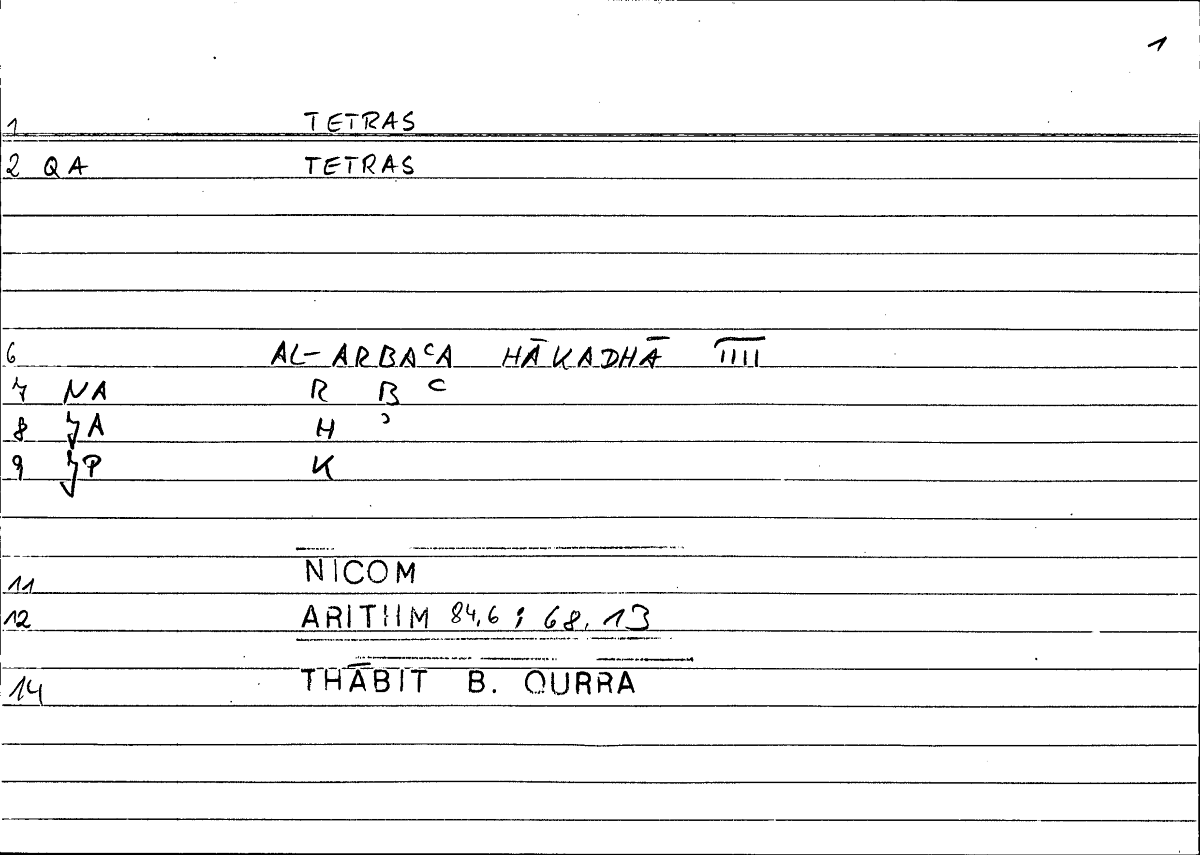 1
1 TETRAS
2 QA TETRAS
6 AL-ARBAᶜA HĀKADHĀ I̅I̅I̅I̅
7 NA R B ᶜ
8 A H ʾ
9 P K
11 NICOM
12 ARITHM 84,6; 68,13
14 THĀBIT B. QURRA